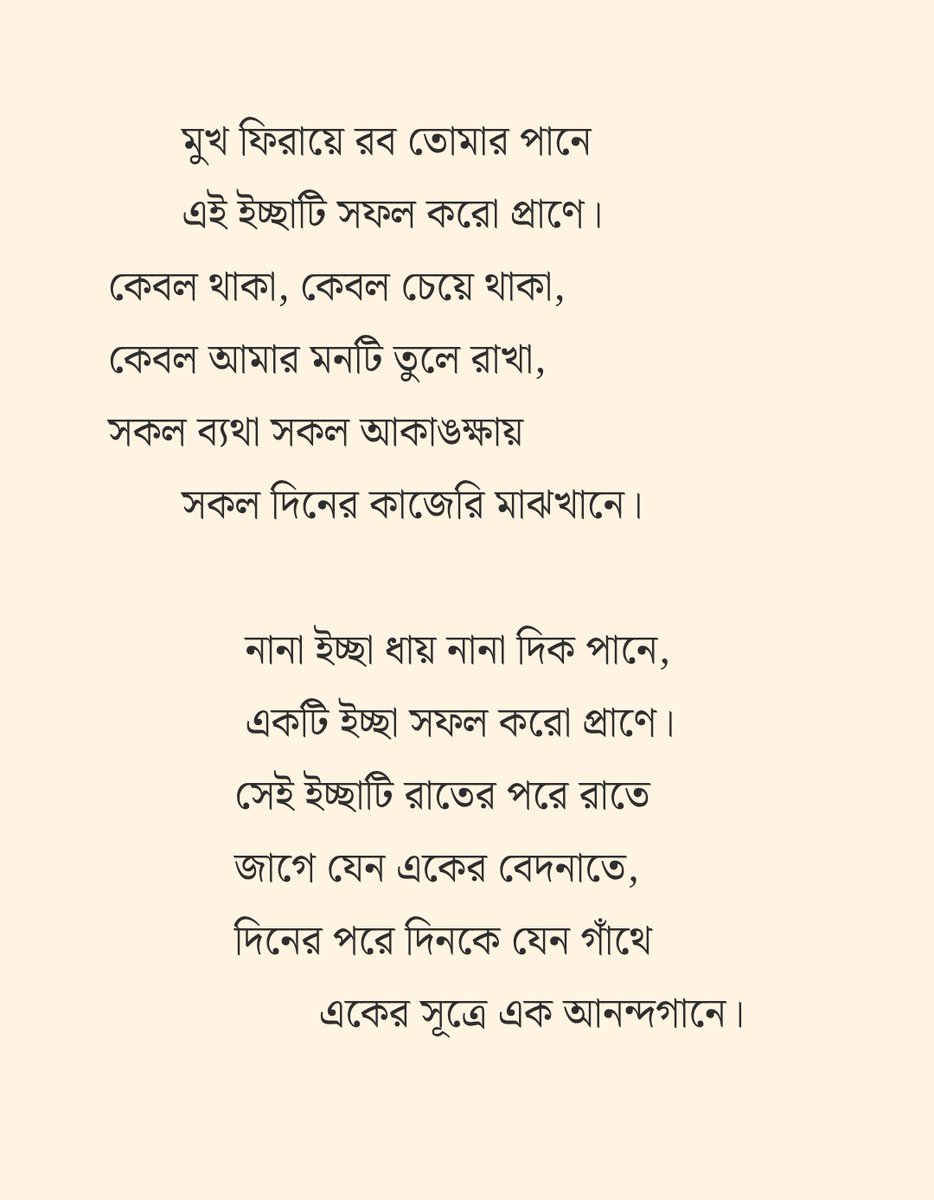 মুখ ফিরায়ে রব তোমার পানে
এই ইচ্ছাটি সফল করো প্রাণে।
কেবল থাকা, কেবল চেয়ে থাকা,
কেবল আমার মনটি তুলে রাখা,
সকল ব্যথা সকল আকাঙক্ষায়
সকল দিনের কাজেরি মাঝখানে।

নানা ইচ্ছা ধায় নানা দিক পানে,
একটি ইচ্ছা সফল করো প্রাণে।
সেই ইচ্ছাটি রাতের পরে রাতে
জাগে যেন একের বেদনাতে,
দিনের পরে দিনকে যেন গাঁথে
একের সূত্রে এক আনন্দগানে।